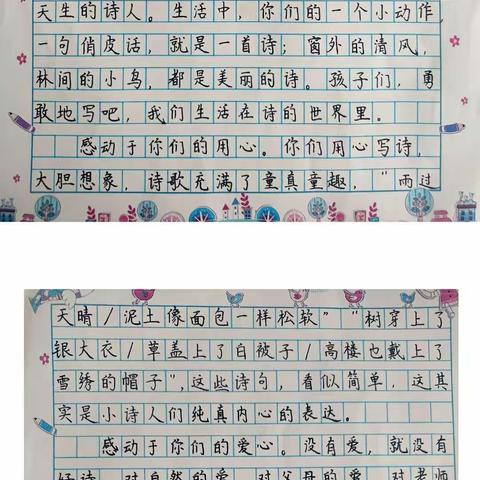 天生的诗人。生活中，你们的一个小动作，
一句俏皮话，就是一首诗；窗外的清风，
林间的小鸟，都是美丽的诗。孩子们，勇
敢地写吧，我们生活在诗的世界里。
感动于你们的用心。你们用心写诗，
大胆想象，诗歌充满了童真童趣，“雨过
天晴/泥土像面包一样松软”“树穿上了
银大衣/草盖上了白被子/高楼也戴上了
雪绣的帽子”，这些诗句，看似简单，这其
实是小诗人们纯真内心的表达。
感动于你们的爱心。没有爱，就没有
好诗。对自然的爱，对父母的爱，对老师